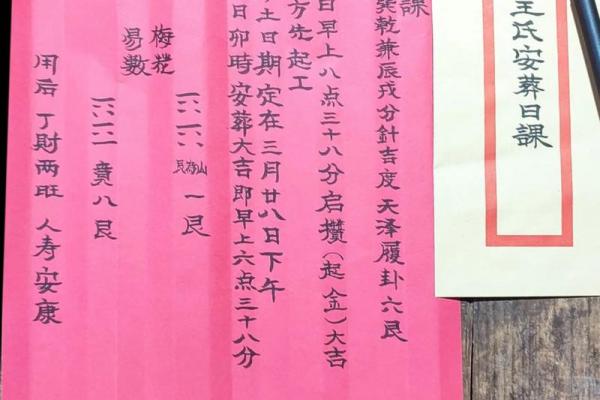 王氏安葬日課
課
巽乾兼辰戌分針吉度 天泽履卦六艮
日早上八点三十八分启攢(起金)大吉
方先起工
土日期定在三月廿八日下午
日卯時安葬大吉即早上六点三十八分
梅
易數
艮為山 一艮
賁八艮
用后 丁財两旺 人寿安康